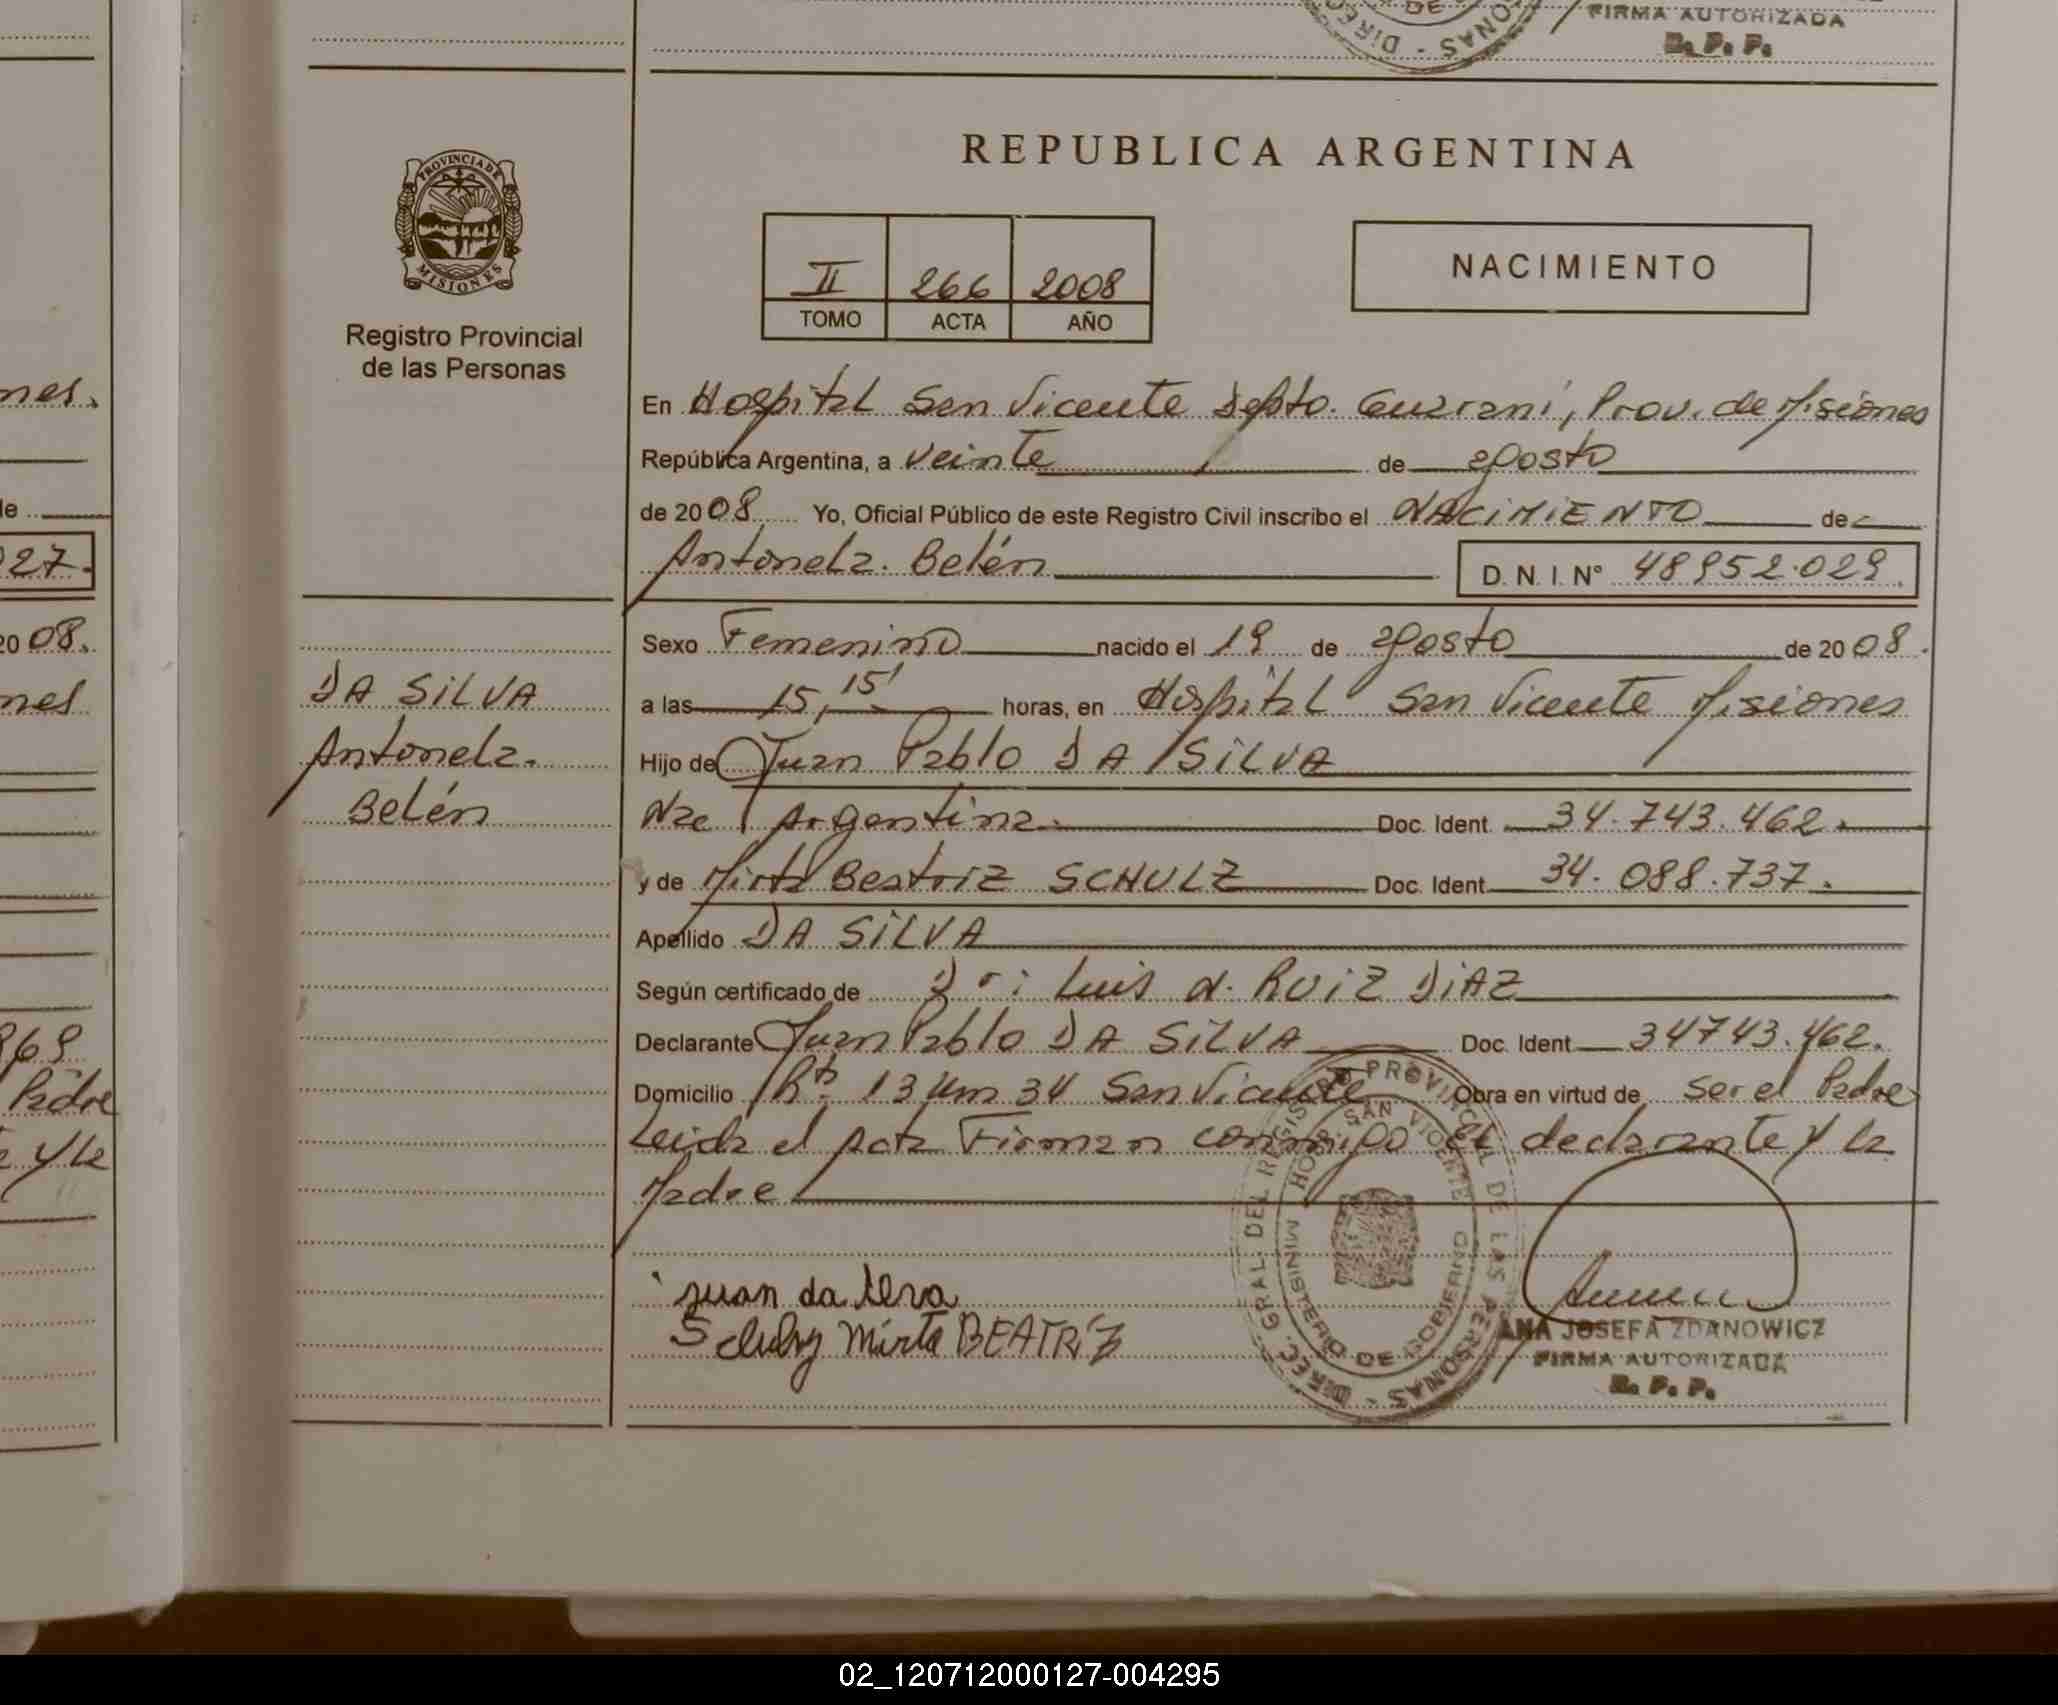 FIRMA AUTORIZADA
R. P. P.
REPUBLICA ARGENTINA
PROVINCIA DE MISIONES
Registro Provincial
de las Personas
II 266 2008
TOMO ACTA AÑO
NACIMIENTO
En Hospital San Vicente Depto. Guaraní, Prov. de Misiones
República Argentina, a veinte de agosto
de 2008 Yo, Oficial Público de este Registro Civil inscribo el NACIMIENTO de
Antonela Belén D. N. I. Nº 48952.029.
Sexo Femenino nacido el 19 de agosto de 2008.
a las 15,15' horas, en Hospital San Vicente Misiones
Hijo de Juan Pablo DA SILVA
Nac Argentina Doc. Ident 34.743.462.
y de Mirta Beatriz SCHULZ Doc. Ident. 34.088.737.
Apellido DA SILVA
Según certificado de Dr: Luis A. RUIZ DIAZ
Declarante Juan Pablo DA SILVA Doc. Ident 34743.462.
Domicilio Rta. 13 Km 34 San Vicente Obra en virtud de ser el Padre
Leida el Acta Firman conmigo El declarante y la
Madre
DA SILVA
Antonela
Belén
juan da
Schulz Mirta BEATRIZ
DIREC. GRAL. DEL REGISTRO PROVINCIAL DE LAS PERSONAS
HOSP. SAN VICENTE
MINISTERIO DE GOBIERNO
ANA JOSEFA ZDANOWICZ
FIRMA AUTORIZADA
R. P. P.
nes.
de
027.
2008.
nes
869
Padre
y la
02_120712000127-004295